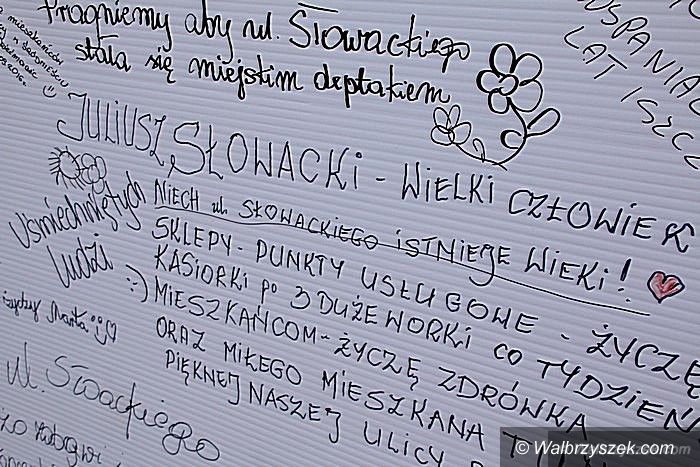 Pragniemy aby ul. Słowackiego
stała się miejskim deptakiem
USPANIA
LAT JSZCZ
JULIUSZ SŁOWACKI - WIELKI CZŁOWIEK
NIECH ul. SŁOWACKIEGO ISTNIEJE WIEKI!
Uśmiechniętych
ludzi :-)
życzy Marta
SKLEPY - PUNKTY USŁUGOWE - ŻYCZĘ
KASIORKI po 3 DUŻE WORKI CO TYDZIEŃ
MIESZKAŃCOM - ŻYCZĘ ZDRÓWKA
ORAZ MIŁEGO MIESZKANA
PIĘKNEJ NASZEJ ULICY
ul. Słowackiego
© Walbrzyszek.com